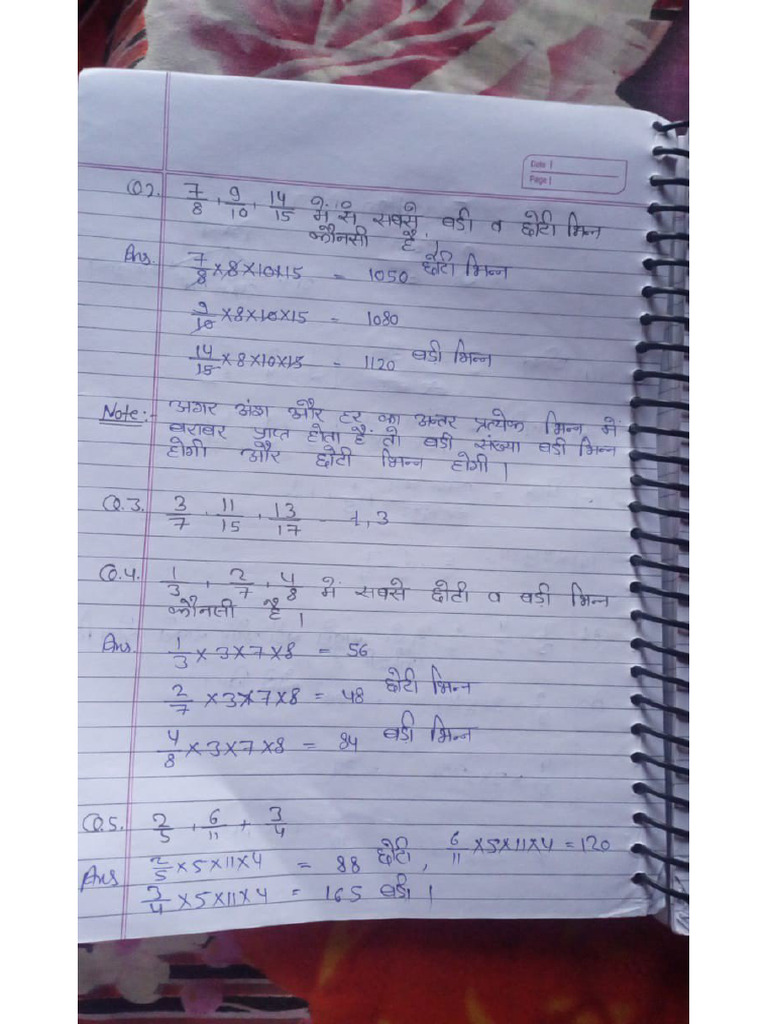 Date |
Page |
Q2. 7/8, 9/10, 14/15 में से सबसे बडी व छोटी भिन्न
कौनसी है।
Ans. 7/8 × 8 × 10 × 15 = 1050 छोटी भिन्न
9/10 × 8 × 10 × 15 = 1080
14/15 × 8 × 10 × 15 = 1120 बडी भिन्न
Note:- अगर अंश और हर का अन्तर प्रत्येक भिन्न में
बराबर प्राप्त होता है तो बडी संख्या बडी भिन्न
होगी और छोटी भिन्न होगी।
Q.3. 3/7, 11/15, 13/17 - 1, 3
Q.4. 1/3, 2/7, 4/8 में सबसे छोटी व बडी भिन्न
कौनसी है।
Ans. 1/3 × 3 × 7 × 8 = 56
2/7 × 3 × 7 × 8 = 48 छोटी भिन्न
4/8 × 3 × 7 × 8 = 84 बडी भिन्न
Q.5. 2/5, 6/11, 3/4
Ans 2/5 × 5 × 11 × 4 = 88 छोटी, 6/11 × 5 × 11 × 4 = 120
3/4 × 5 × 11 × 4 = 165 बडी।